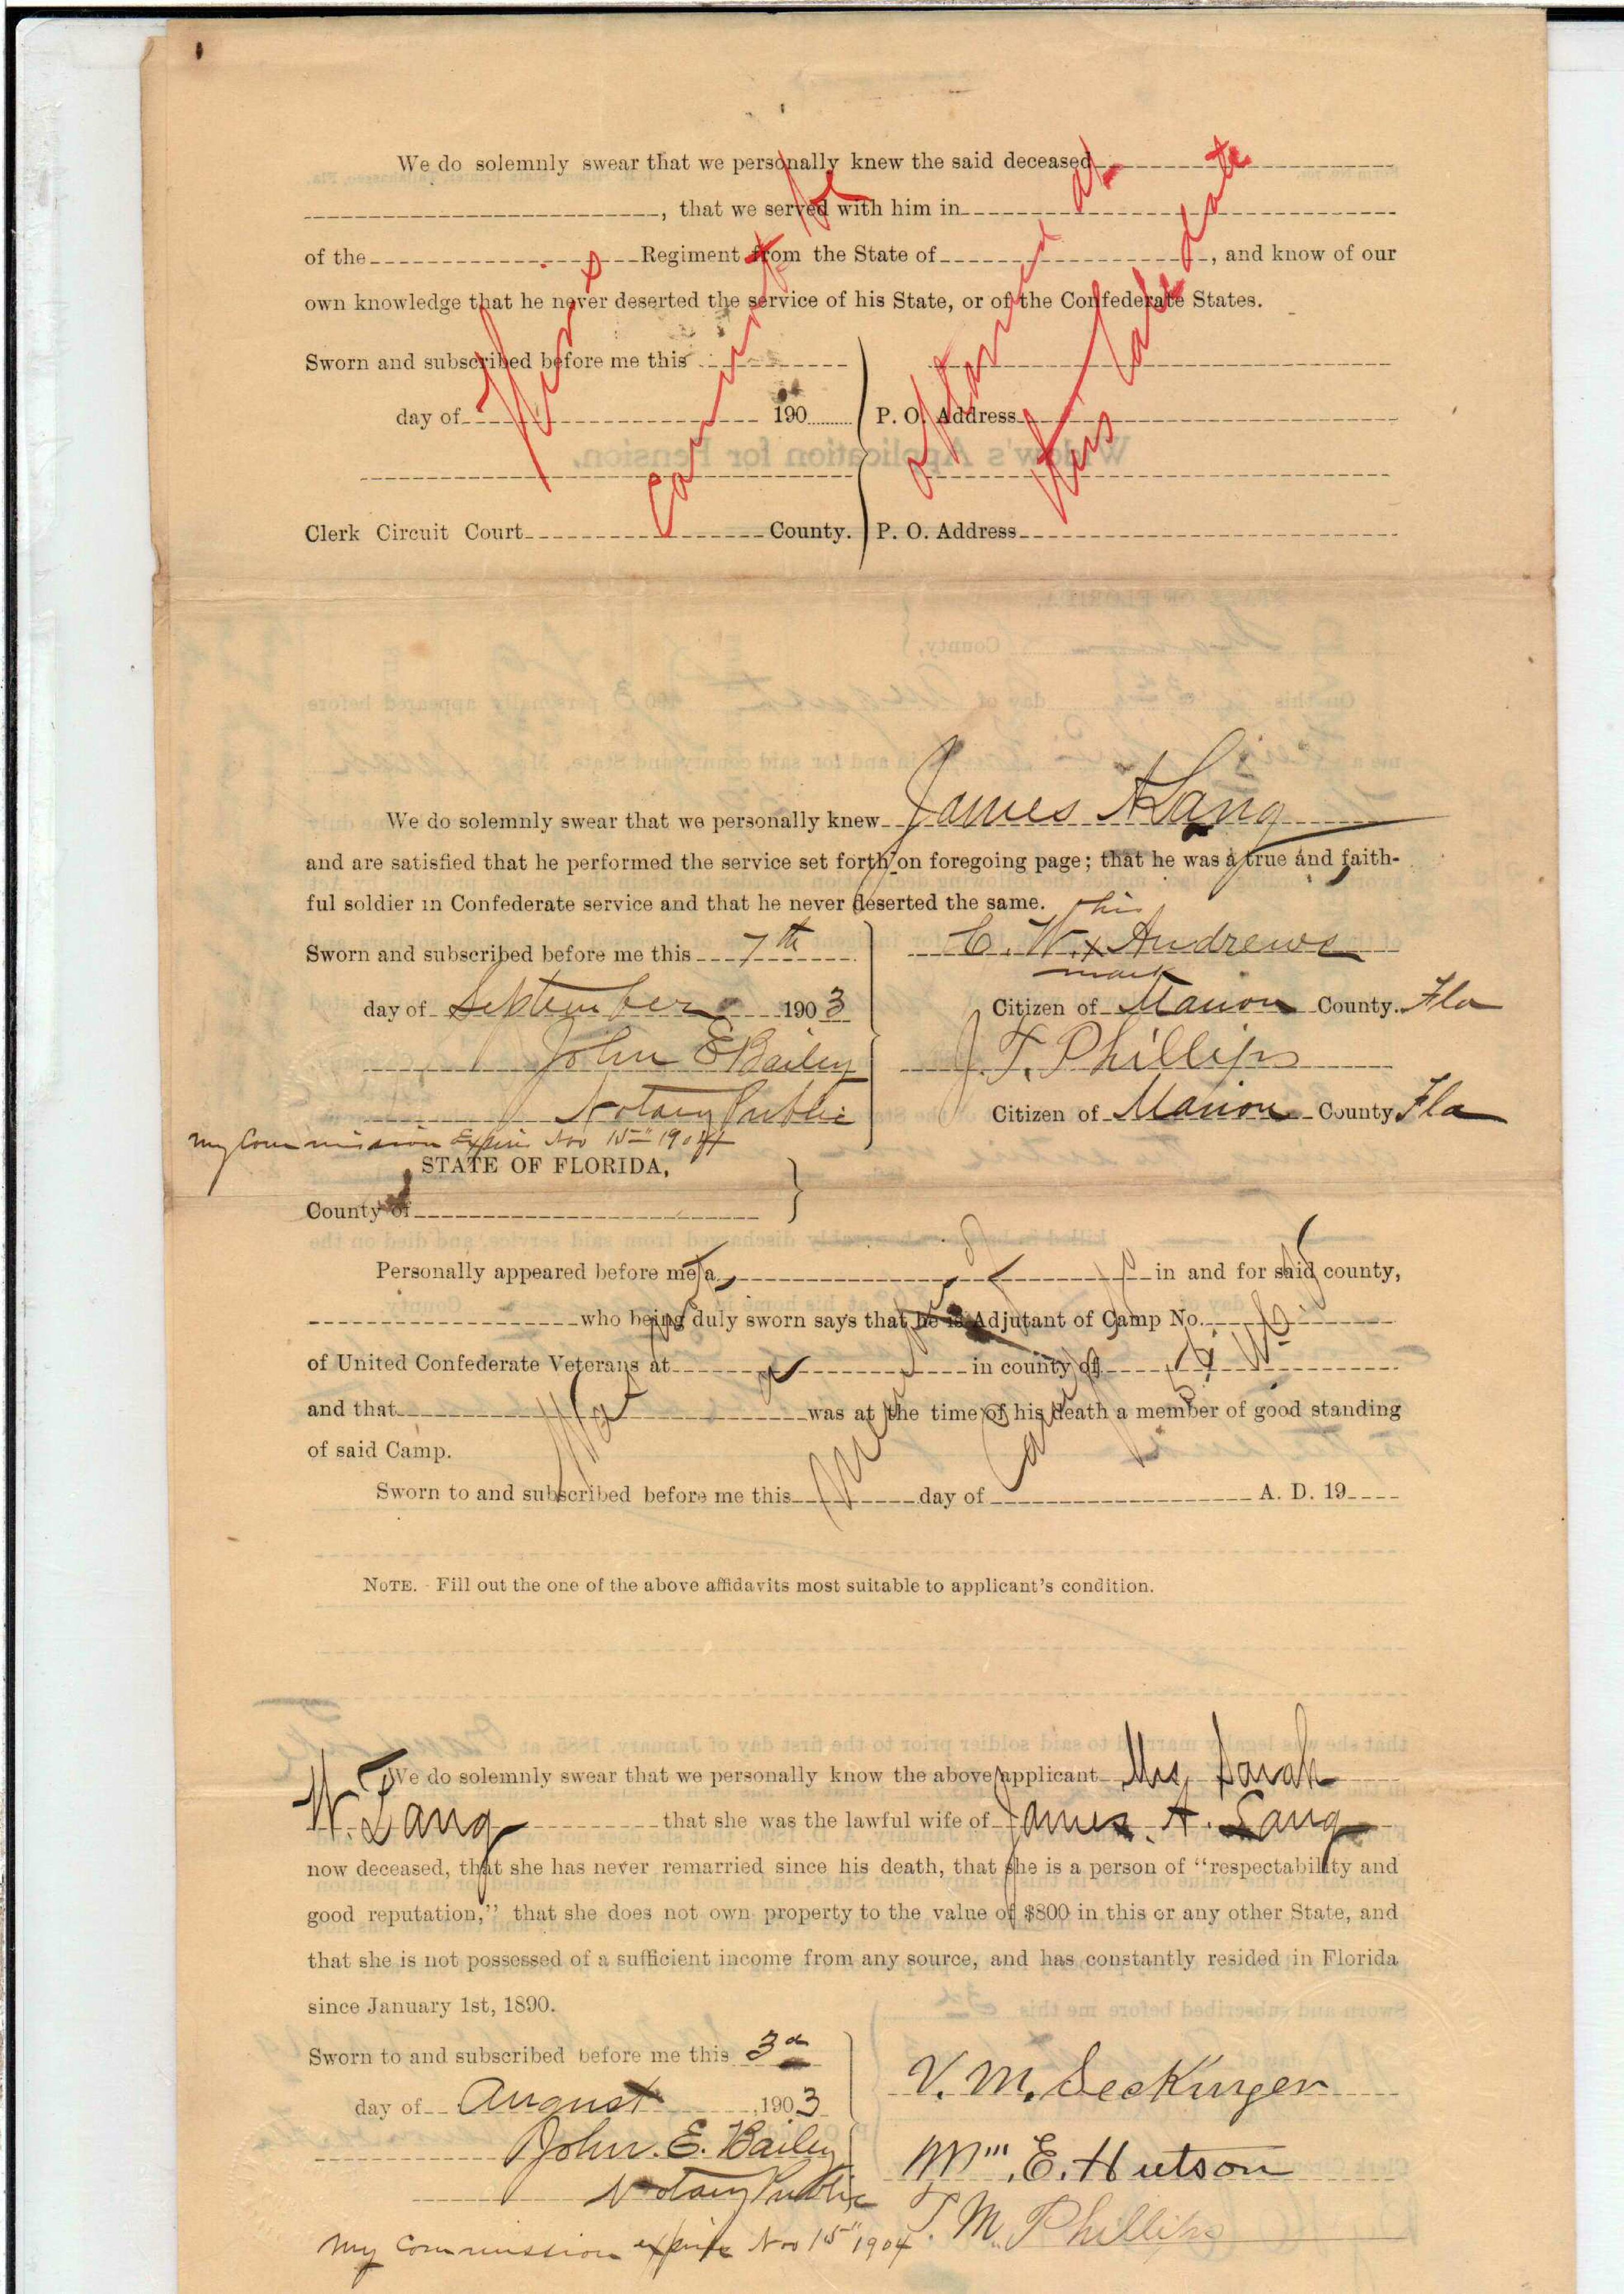 We do solemnly swear that we personally knew the said deceased
, that we served with him in
of the Regiment from the State of , and know of our
own knowledge that he never deserted the service of his State, or of the Confederate States.
Sworn and subscribed before me this
day of 190 P. O. Address
Clerk Circuit Court County. P. O. Address
This
cannot be
obtained at
this late date
We do solemnly swear that we personally knew James A Lang
and are satisfied that he performed the service set forth on foregoing page; that he was a true and faith-
ful soldier in Confederate service and that he never deserted the same.
his
Sworn and subscribed before me this 7th C. W. x Andrews
mark
day of September 1903 Citizen of Marion County. Fla
John E Bailey J. T. Phillips
Notary Public Citizen of Marion County Fla
My Commission Expires Nov 15th 1904
STATE OF FLORIDA,
County of
Personally appeared before me a in and for said county,
who being duly sworn says that he is Adjutant of Camp No.
of United Confederate Veterans at in county of
and that was at the time of his death a member of good standing
of said Camp.
Sworn to and subscribed before me this day of A. D. 19
Was not
a member of
Camp
NOTE. - Fill out the one of the above affidavits most suitable to applicant's condition.
We do solemnly swear that we personally know the above applicant Mrs, Sarah
W. Lang that she was the lawful wife of James. A. Lang
now deceased, that she has never remarried since his death, that she is a person of "respectability and
good reputation," that she does not own property to the value of $800 in this or any other State, and
that she is not possessed of a sufficient income from any source, and has constantly resided in Florida
since January 1st, 1890.
Sworn to and subscribed before me this 3d
day of August ,1903 V. M. Seckinger
John. E. Bailey Wm. E. Hutson
Notary Public T. M. Phillips
My Commission expires Nov 15" 1904